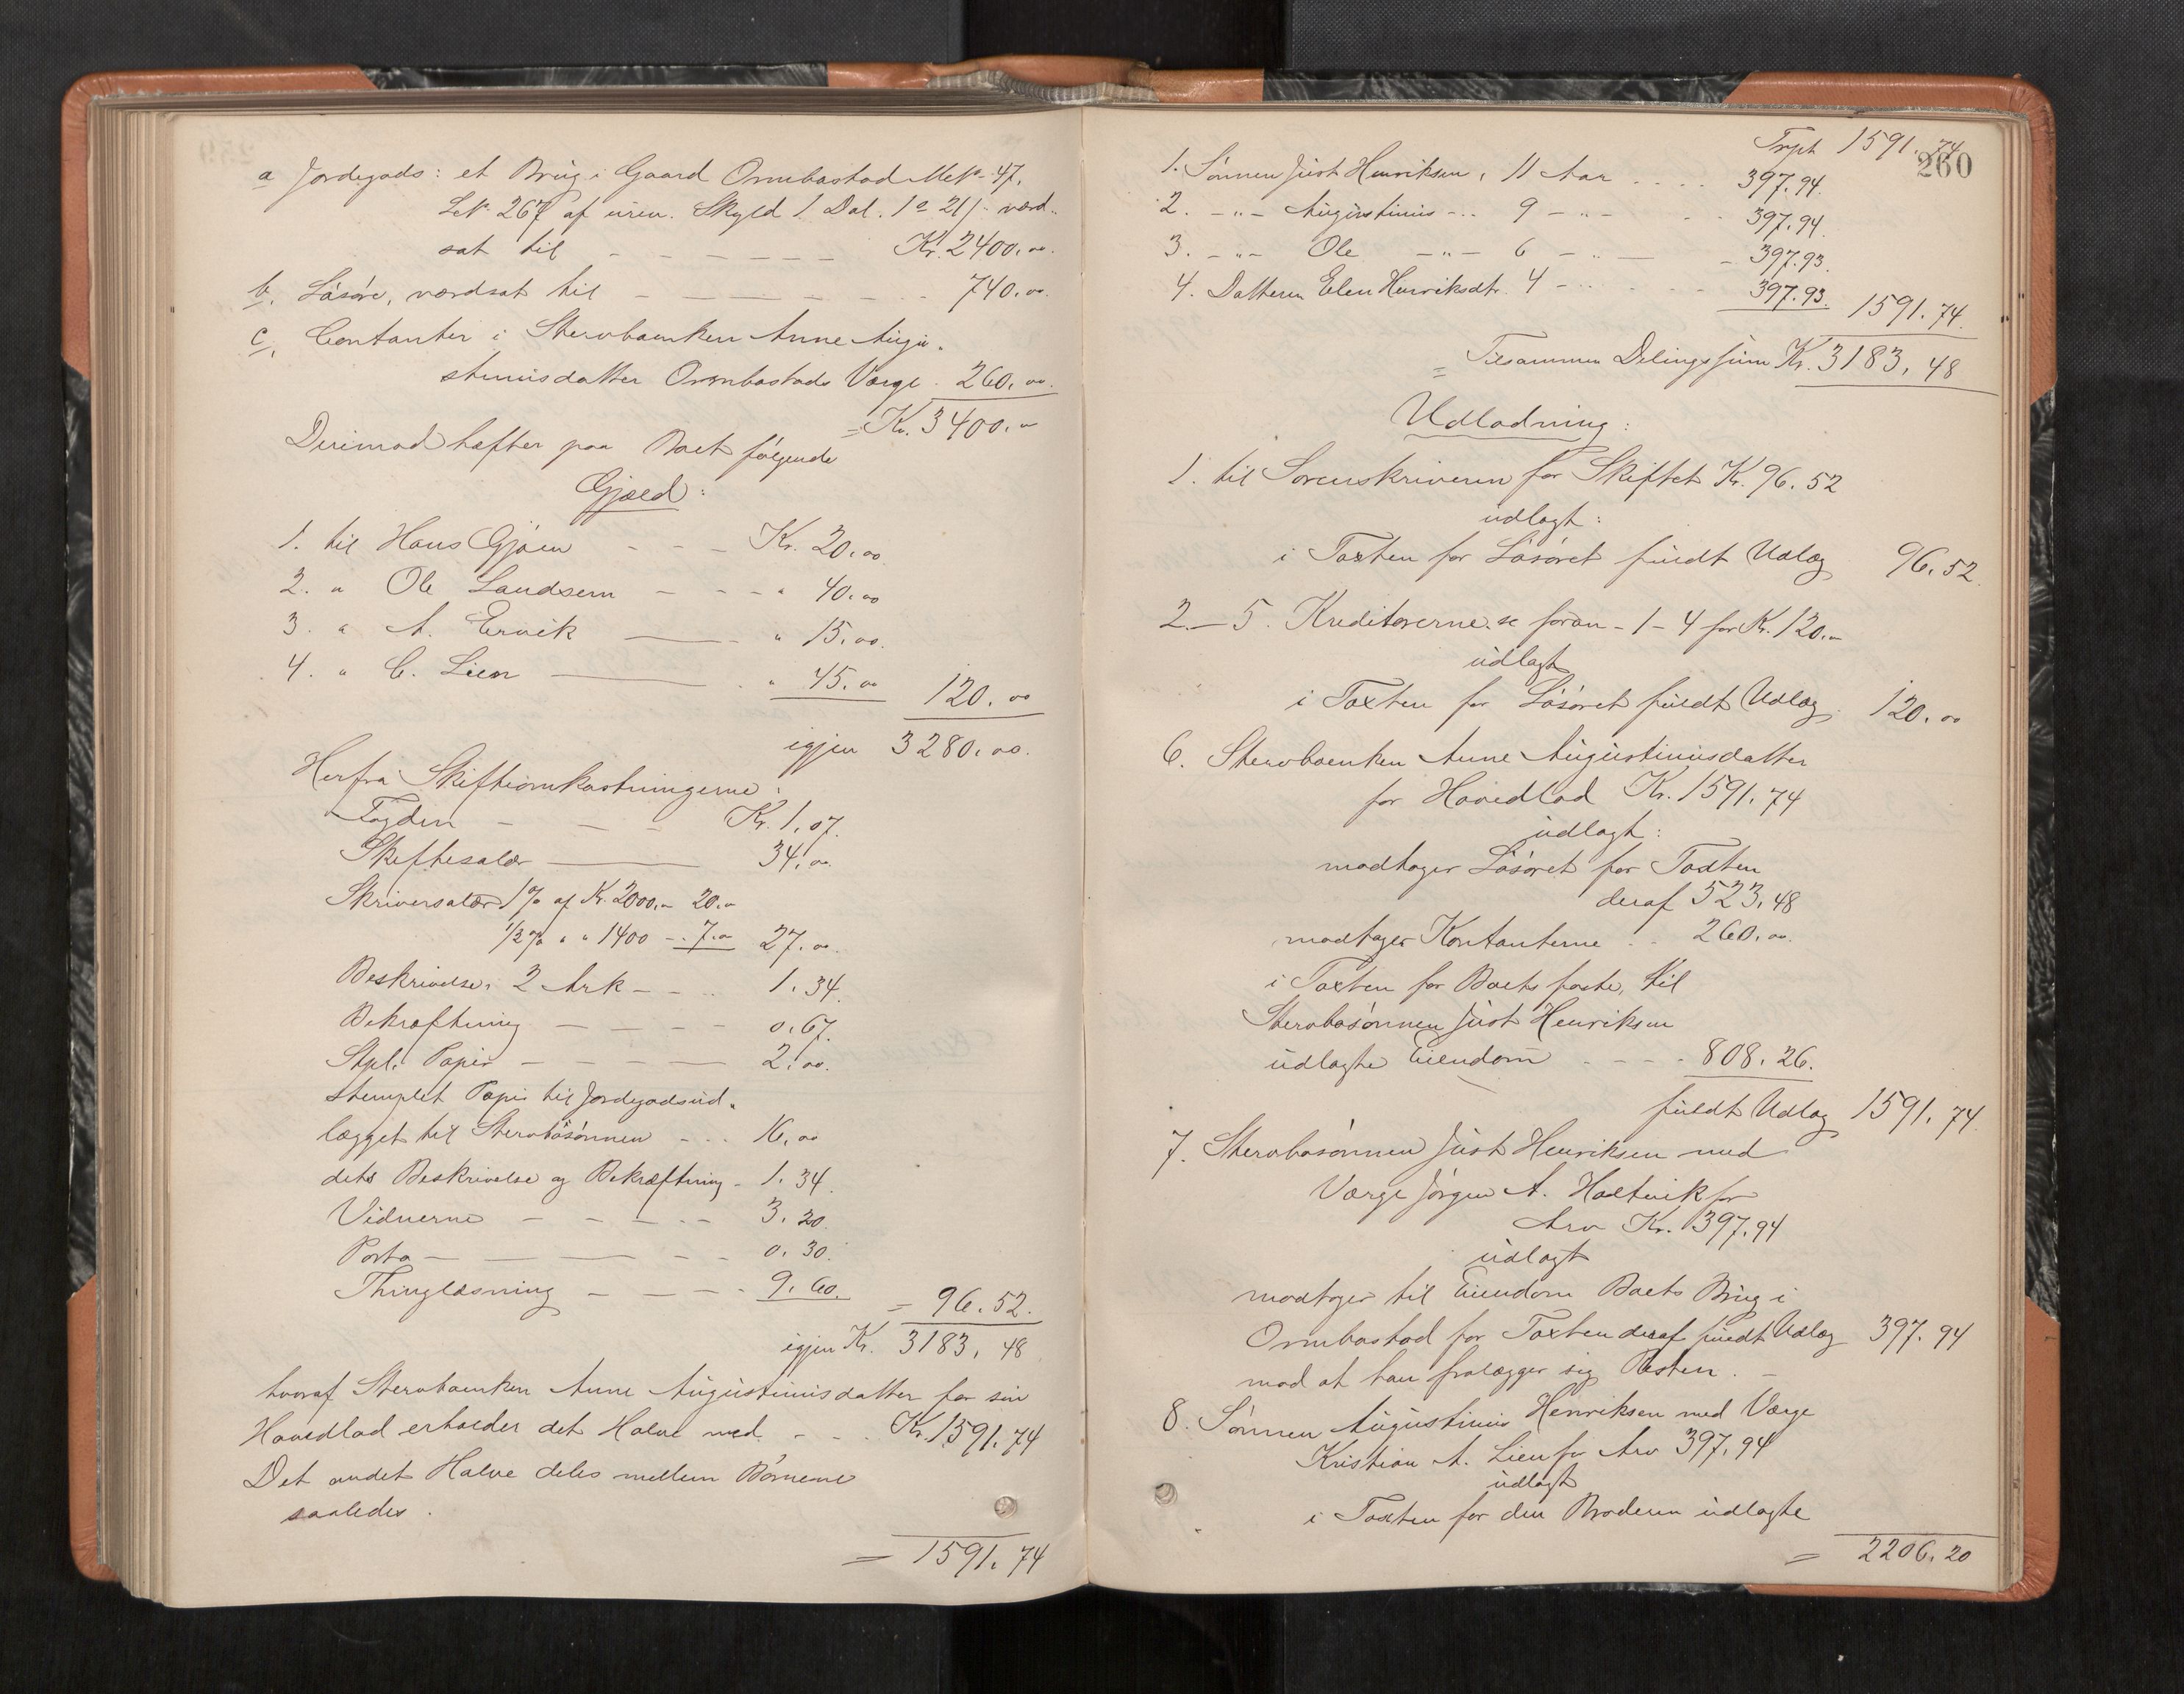 a Jordegods: et Brug i Gaard Ormbostad Mek. 47,
LNo. 267 af uren. Skyld 1 Dal. 1 o 21 s værd-
sat til Kr. 2400.00.
b. Løsøre, værdsat til 740.00.
c, Contanter i Stervboenken Anne Augu-
stinusdatter Ormbostads Værge. 260.00.
= Kr. 3400.00
Derimod hæfter paa Boet følgende
Gjæld:
1. til Hans Gjøen Kr. 20.00
2. " Ole Landsem " 40.00
3. " A. Ervik " 15.00.
4. " C. Lien " 45.00 120.00
igjen 3280.00.
Herfra Skifteomkostningerne:
Fogden Kr. 1.07.
Skiftesalær 34.00.
Skriversalær 1% af Kr. 2000.00 20.00
1/2% " " 1400 - 7.00 27.00.
Beskrivelse, 2 Ark 1.34.
Bekræftning 0.67.
Stpl. Papir 2.00.
stemplet Papir til Jordegodsud-
lægget til Stervbosønnen 16.00
dets Beskrivelse og Bekræftning 1.34.
Vidnerne 3.20.
Porto 0.30.
Thinglæsning 9.60. = 96.52.
igjen Kr. 3183.48
hvoraf Stervboenken Anne Augustinusdatter for sin
Hovedlod erholder det Halve med Kr. 1591.74
Det andet Halve deles mellem Børnene
saaledes.
= 1591.74
Trpt 1591.74
260
1. Sønnen Just Henriksen, 11 Aar 397.94.
2. -"- Augustinus -.. 9 -"- 397.94.
3. -"- Ole -"- 6 -"- 397.93.
4. Datteren Elen Henriksdtr. 4 -"- 397.93. 1591.74.
= Tilsammen Delingssum Kr. 3183.48
Udlodning:
1. til Sorenskriveren for Skiftet Kr. 96.52
udlagt:
i Taxten for Løsøret fuldt Udlæg 96.52.
2.-5. Kreditorerne se foran - 1-4 for Kr. 120.00
udlagt
i Taxten for Løsøret fuldt Udlæg. 120.00
6. Stervboenken Anne Augustinusdatter
for Hovedlod Kr. 1591.74
udlagt:
modtager Løsøret for Taxten
deraf 523.48
modtager Kontanterne 260.00.
i Taxten for Boets faste, til
Stervbosønnen Just Henriksen
udlagte Eiendom 808.26.
fuldt Udlæg 1591.74.
7. Stervbosønnen Just Henriksen med
Værge Jørgen A. Holtvik for
Arv Kr. 397.94
udlagt
modtager til Eiendom Boets Brug i
Ormbostad for Taxten deraf fuldt Udlæg 397.94
mod at han fralægger sig Resten.
8. Sønnen Augustinus Henriksen med Værge
Kristian A. Lien for Arv 397.94
udlagt
i Taxten for den Broderen udlagte
= 2206.20